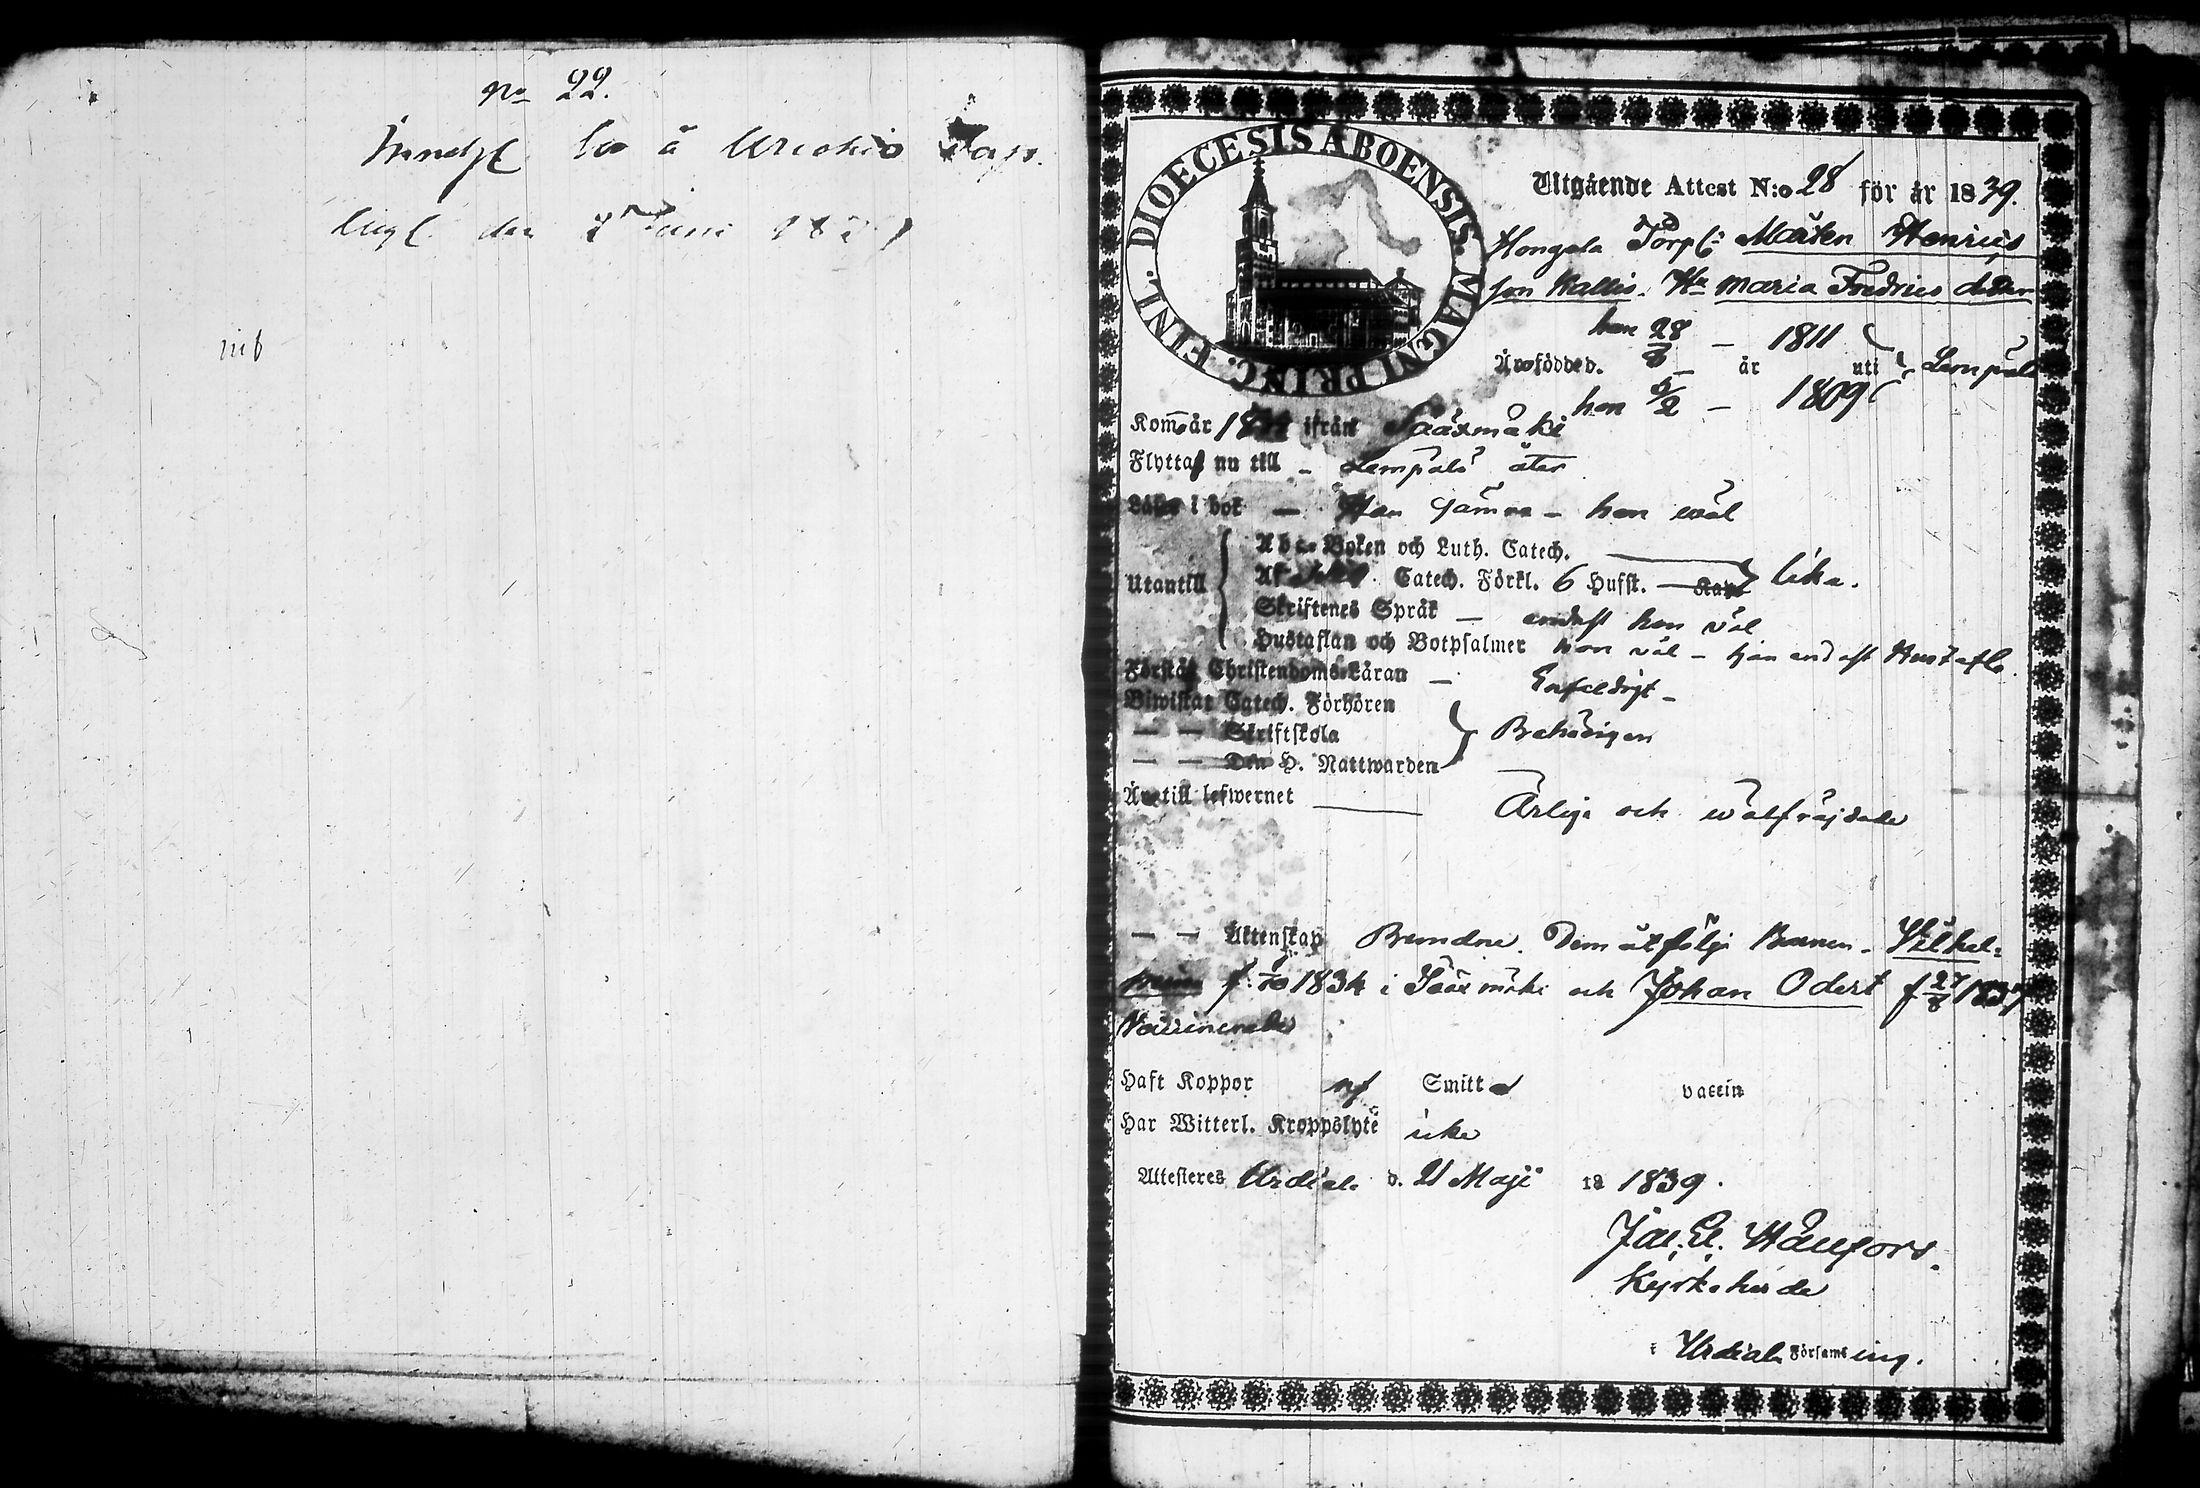 No 22.
den 7 Juni
DIOECESIS ABOENSIS. MAGNI PRINC. FINL.
Utgående Attest N:o 28 för år 1839.
Hongola Torp: Mårten Henrics
son Kallio. Hu Maria Fredrics dotter
han 28/8 — 1811
Äro födde d. — år uti Lempälä
hon 5/2 — 1809
Kom år ifrån Sääxmäki
Flytta nu till – Lempälä åter
Läser i bok — Han jämna – hon wäl
Utantill
Abc-Boken och Luth. Catech.
Catech. Förkl. 6 Hufst. — Kap lika.
Skriftenes Språk — endast hon väl
Hustaflan och Botpsalmer hon väl – han endast Hustafla
Förstår Christendoms-Läran — Enfeldigt –
Biwistar Catech. Förhören
— — Skriftskola Behörigen
— — Den H. Nattwarden
Äro till lefwernet — Ärliga och wälfräjdade
— — Äktenskap Bundne. Dem åtfölja Barnen. Vilhel-
mina f. /10 1834 i Sääxmäki och Johan Odert f 27/8 1837
Vaccinerade
Haft Koppor Smitt vaccin
Har Witterl. Kroppslyte icke
Attesteres Urdiala d. 21 Maji 18 1839.
Kyrkoherde
i Urdiala Församling.